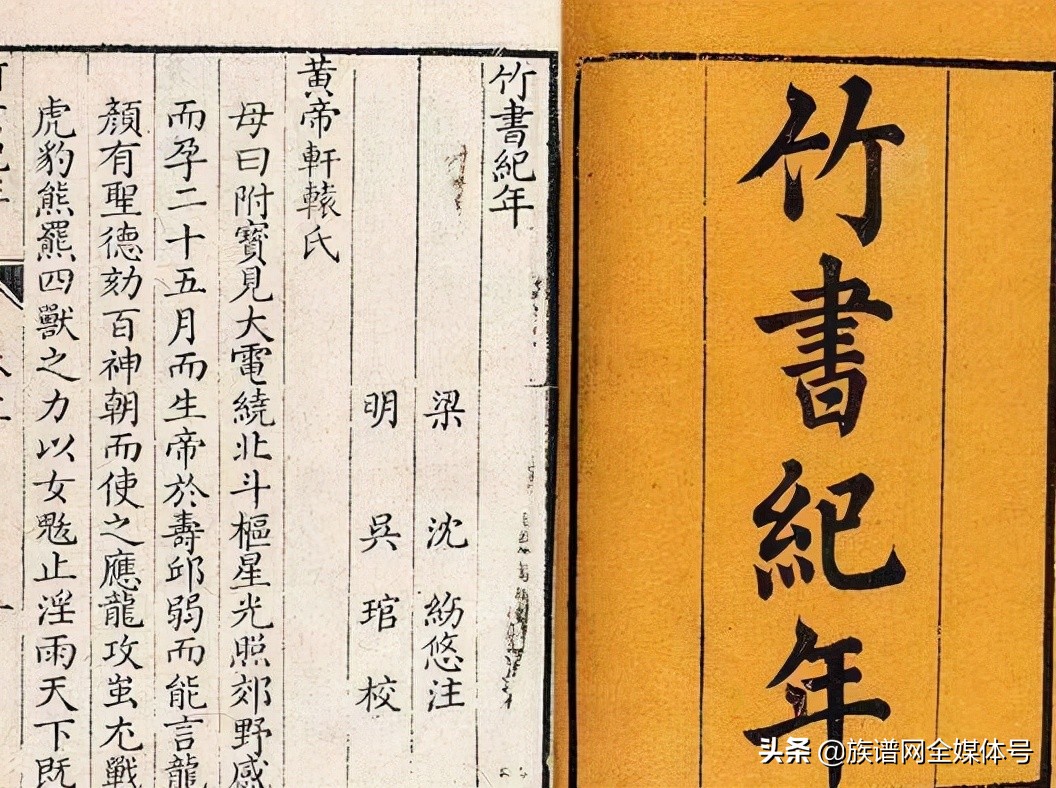 竹書紀年
竹書紀年
梁 沈 紛悠注
明 吳 琯 校
黃帝軒轅氏
母曰附寶見大電繞北斗樞星光照郊野感
而孕二十五月而生帝於壽邱弱而能言龍
顏有聖德劾百神朝而使之應龍攻蚩尤戰
虎豹熊羆四獸之力以女魃止淫雨天下既
头条 @族谱网全媒体号